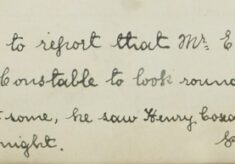 to report that Mr. E
Constable to look round
some, he saw Henry
night.